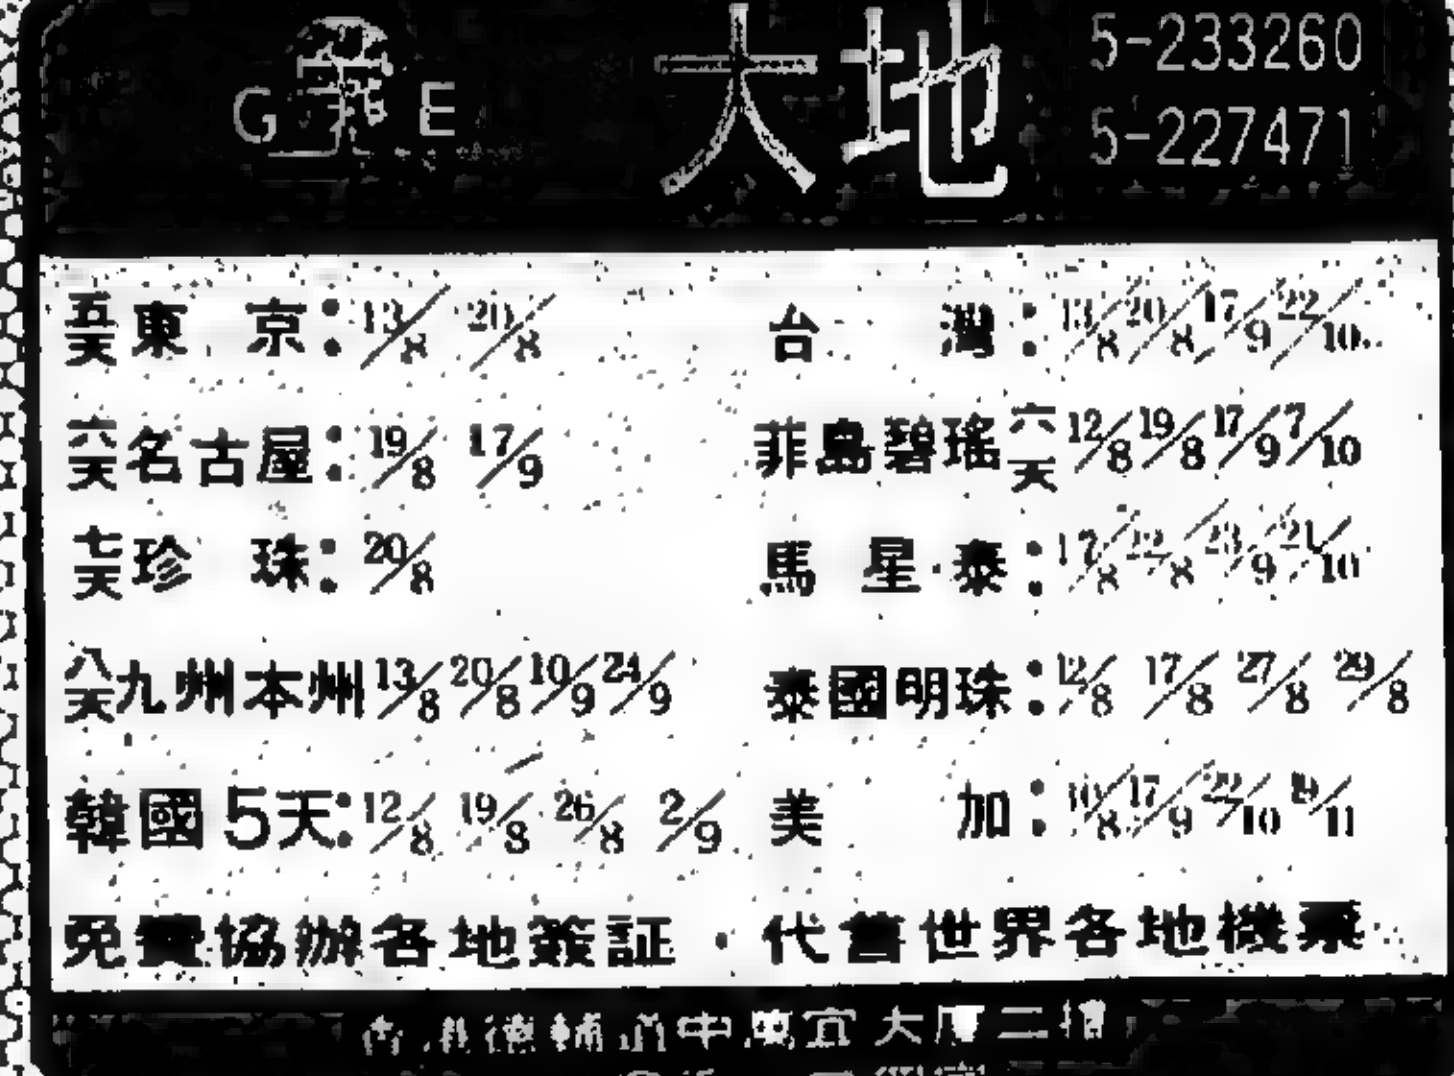 G E 大地 5-233260
5-227471
五天東京：13/8 20/8
六天名古屋：19/8 17/9
七天珍珠：20/8
八天九州本州13/8 20/8 10/9 24/9
韓國5天：12/8 19/8 26/8 2/9
台灣：13/8 20/8 17/9 22/10
菲島碧瑤六天12/8 19/8 17/9 7/10
馬星泰：17/8 22/8 23/9 21/10
泰國明珠：12/8 17/8 27/8 29/8
美加：10/8 17/9 22/10 19/11
免費協辦各地簽証・代售世界各地機票
德輔道中萬宜大厦二樓